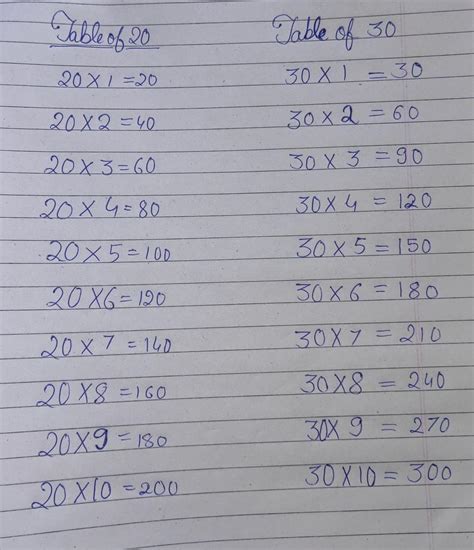 Table of 20
20 X 1 = 20
20 X 2 = 40
20 X 3 = 60
20 X 4 = 80
20 X 5 = 100
20 X 6 = 120
20 X 7 = 140
20 X 8 = 160
20 X 9 = 180
20 X 10 = 200
Table of 30
30 X 1 = 30
30 X 2 = 60
30 X 3 = 90
30 X 4 = 120
30 X 5 = 150
30 X 6 = 180
30 X 7 = 210
30 X 8 = 240
30 X 9 = 270
30 X 10 = 300